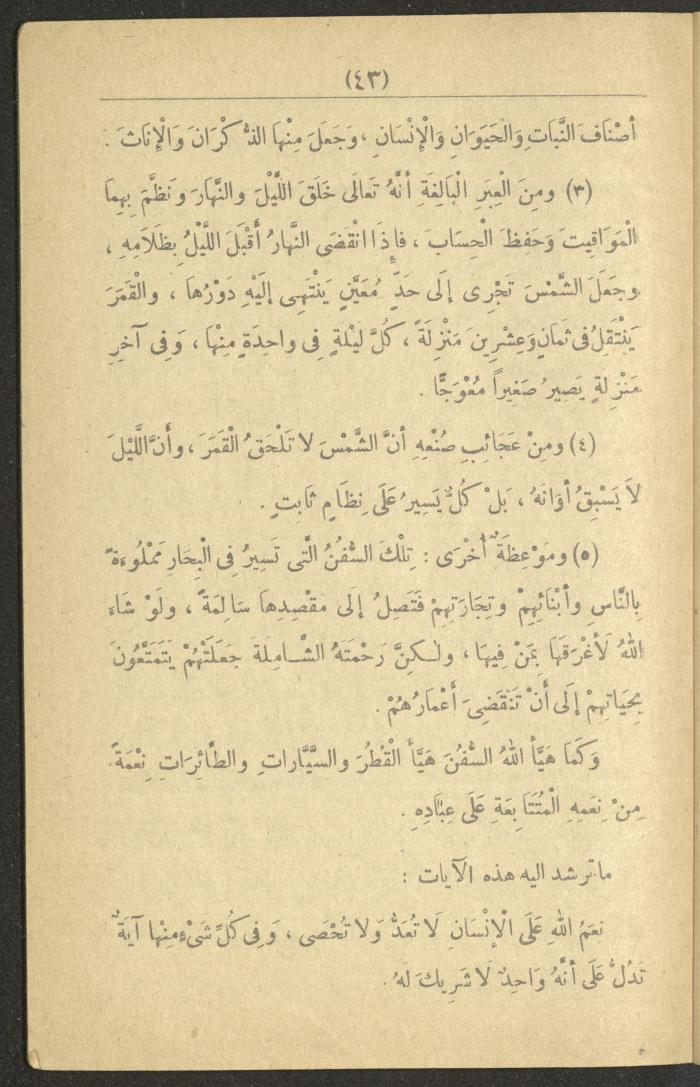 (٤٣)
أصْنَافَ النَّبَاتِ وَالْحَيَوَانِ وَالْإِنْسَانِ ، وَجَعَلَ مِنْهَا الذُّ كْرَانَ وَالْإِنَاثَ .
(٣) ومِنَ الْعِبَرِ الْبَالِغَةِ أنَّهُ تَعَالَى خَلَقَ اللَّيْلَ والنَّهَارَ ونَظَّمَ بِهِمَا
الْمَوَاقِيتَ وَحَفِظَ الْحِسَابَ ، فإِذَا انْقَضَى النَّهارُ أقْبَلَ اللَّيْلُ بِظَلَامِهِ ،
وجَعَلَ الشَّمْسَ تَجْرِى إلَى حَدٍّ مُعَيَّنٍ يَنْتَهِى إلَيْهِ دَوْرُهَا ، والْقَمَرَ
يَنْتَقِلُ فى ثَمَانٍ وَعِشْرِينَ مَنْزِلَةً ، كُلَّ لَيْلةٍ فِى واحِدَةٍ مِنْهَا ، وَفِى آخِرِ
مَنْزِلةٍ يَصِيرُ صَغِيراً مُعْوَجًّا .
(٤) ومِنْ عَجَائِبِ صُنْعِهِ أنَّ الشَّمْسَ لا تَلْحَقُ الْقَمَرَ ، وأَنَّ اللَّيْلَ
لاَ يَسْبِقُ أوَانَهُ ، بَلْ كُلٌّ يَسِيرُ عَلَى نِظَامٍ ثَابِتٍ .
(٥) ومَوْعِظَةٌ أُخْرَى : تِلْكَ السُّفُنُ الَّتِى تَسِيرُ فِى الْبِحَارِ مَمْلُوءَةً
بِالنَّاسِ وأبْنَائِهِمْ وتِجَارَتِهِمْ فَتَصِلُ إلَى مَقْصِدِهاَ سَالِمَةً ، ولَوْ شَاءَ
اللهُ لَأَغْرَقَهَا بِمَنْ فِيهَا ، ولٰكِنَّ رَحْمَتَهُ الشَّامِلَةَ جَعَلَتْهُمْ يَتَمَتَّعُونَ
بِحَيَاتِهِمْ إلَى أَنْ تَنْقَضِىَ أَعْمَارُهُمْ .
وَكَمَا هَيَّأَ اللهُ السُّفُنَ هَيَّأَ الْقُطُرَ والسَّيَّاراتِ والطَّائِرَاتِ نِعْمَةً
مِنْ نِعَمِهِ الْمُتَتَابِعَةِ عَلَى عِبَادِهِ .
ما ترشد اليه هذه الآيات :
نعَمُ اللهِ عَلَى الْإِنْسَانِ لَا تُعَدُّ وَلا تُحْصَى ، وَفِى كُلِّ شَىْءٍ مِنْها آيَةٌ
تَدُلُّ عَلَى أنَّهُ وَاحِدٌ لَا شَرِيكَ لَهُ .